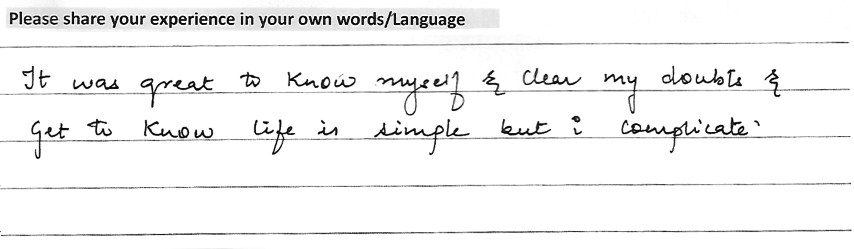 Please share your experience in your own words/Language
It was great to know myself & clear my doubts &
Get to know life is simple but i complicate.